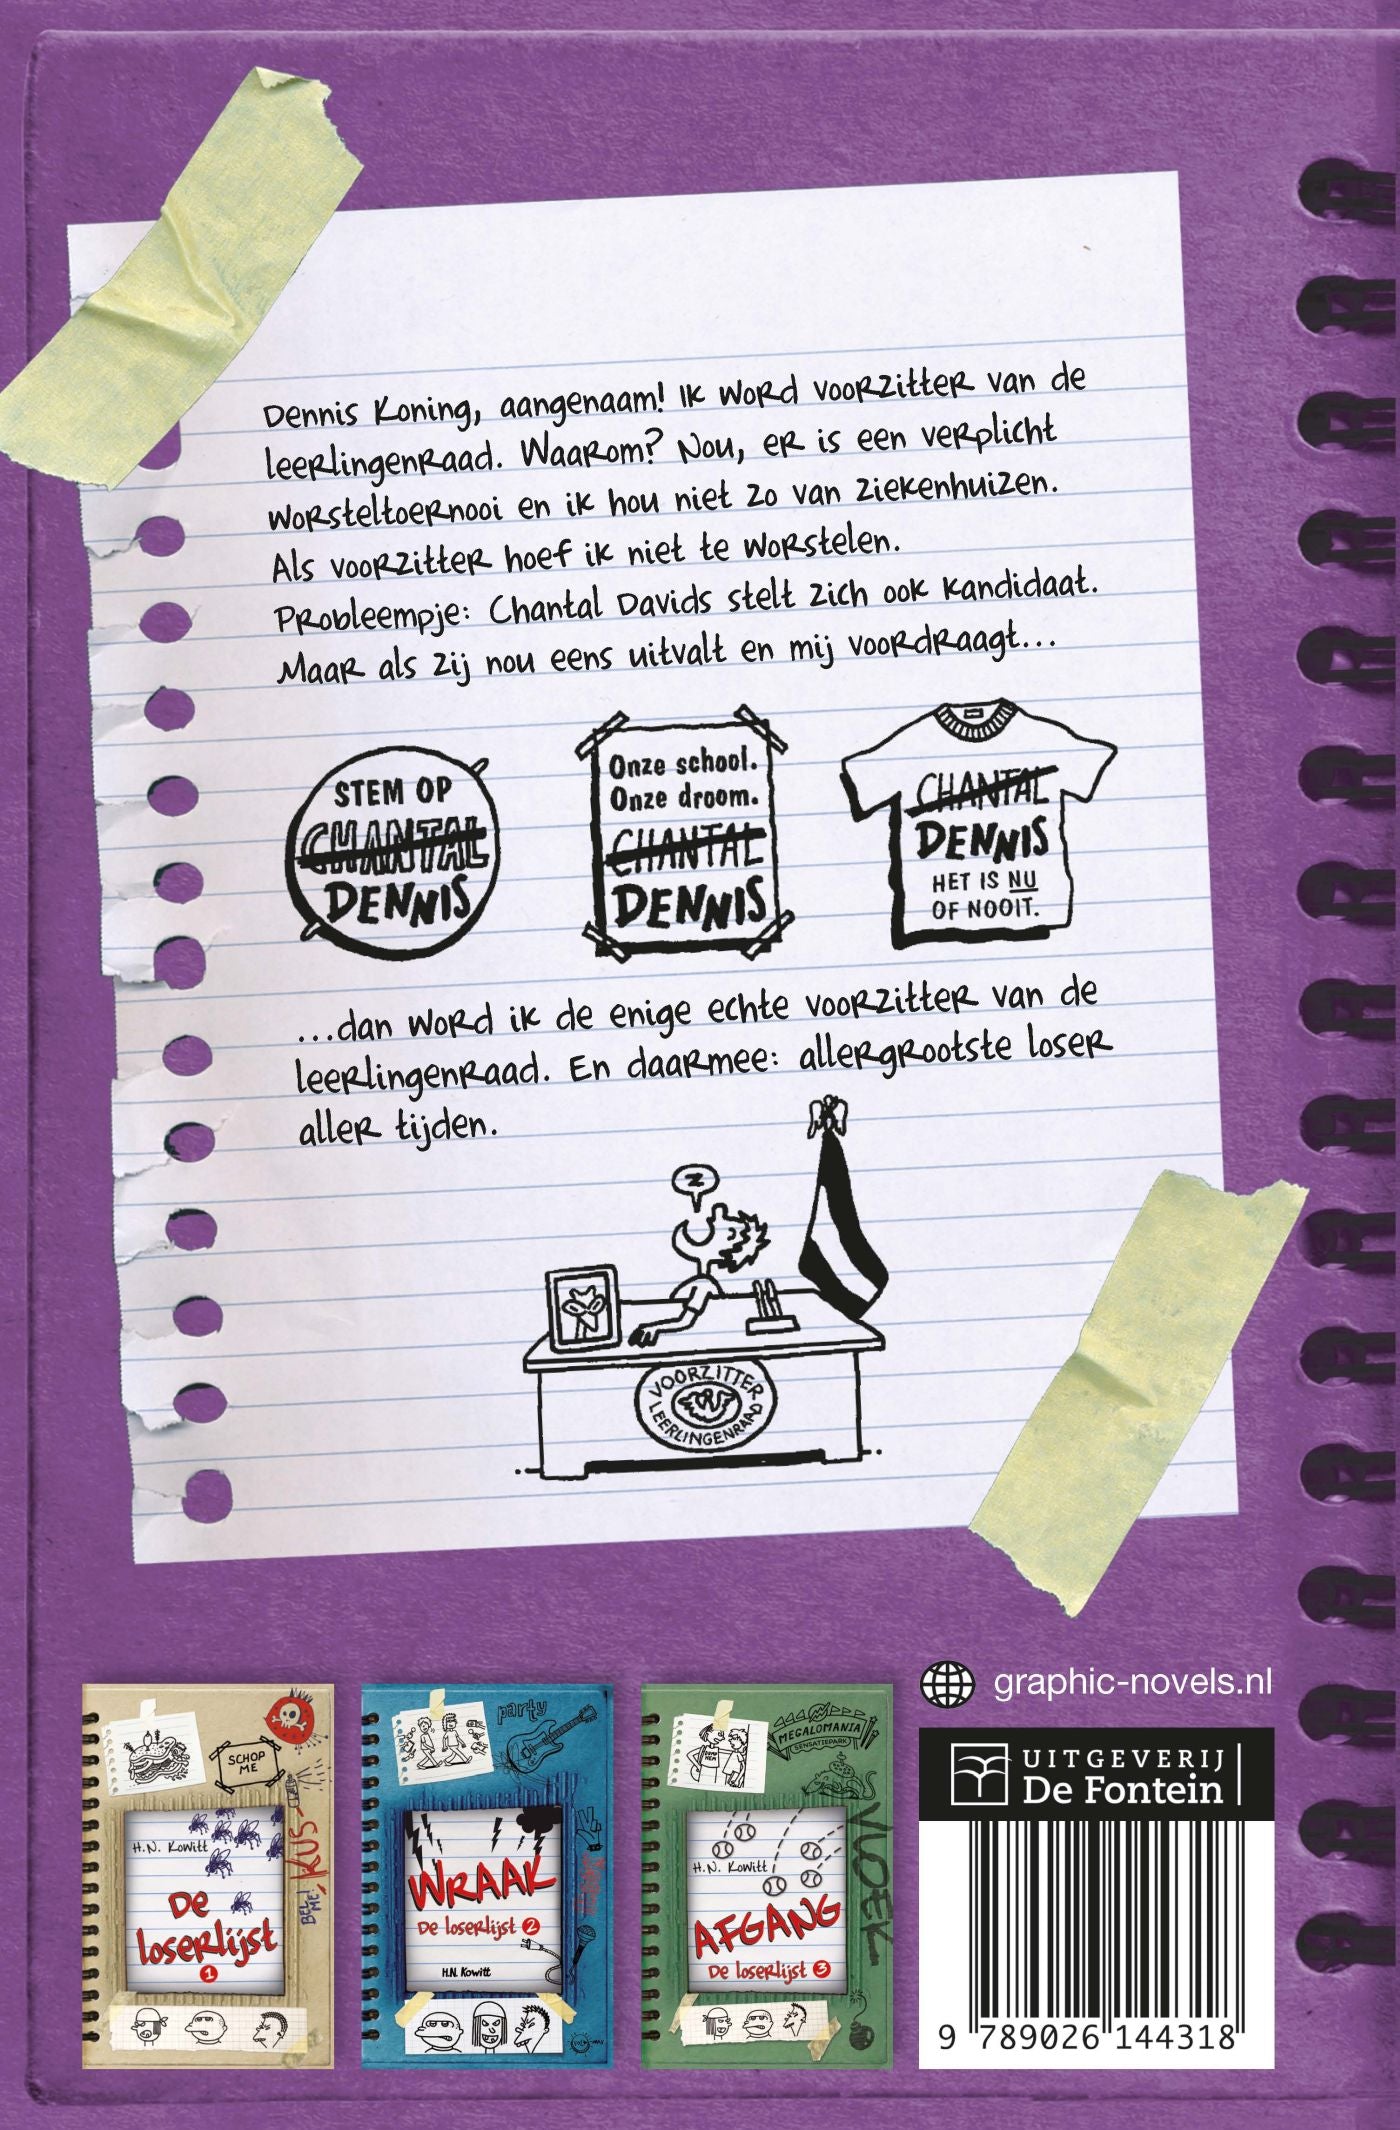 Dennis Koning, aangenaam! Ik word voorzitter van de
leerlingenraad. Waarom? Nou, er is een verplicht
worsteltoernooi en ik hou niet zo van ziekenhuizen.
Als voorzitter hoef ik niet te worstelen.
Probleempje: Chantal Davids stelt zich ook kandidaat.
Maar als zij nou eens uitvalt en mij voordraagt...
STEM OP
CHANTAL
DENNIS
Onze school.
Onze droom.
CHANTAL
DENNIS
CHANTAL
DENNIS
HET IS NU
OF NOOIT.
...dan word ik de enige echte voorzitter van de
leerlingenraad. En daarmee: allergrootste loser
aller tijden.
Z
VOORZITTER
LEERLINGENRAAD
SCHOP
ME
KUS
BEL ME!
H.N. Kowitt
De
loserlijst
1
party
WRAAK
De loserlijst 2
H.N. Kowitt
MEGALOMANIA
SENSATIEPARK
VLOEK
H.N. Kowitt
AFGANG
De loserlijst 3
graphic-novels.nl
UITGEVERIJ
De Fontein
9 789026 144318